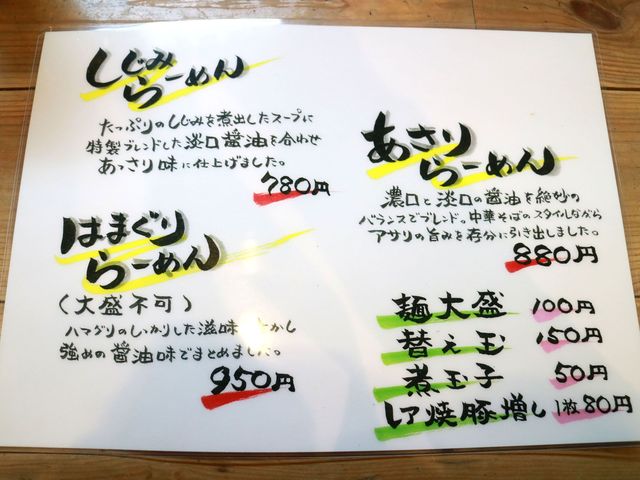 しじみ
らーめん
たっぷりのしじみを煮出したスープに
特製ブレンドした淡口醤油を合わせ
あっさり味に仕上げました。
780円
はまぐり
らーめん
(大盛不可)
ハマグリのしっかりした滋味 かし
強めの醤油味でまとめました。
950円
あさり
らーめん
濃口と淡口の醤油を絶妙の
バランスでブレンド。中華そばのスタイルながら
アサリの旨みを存分に引き出しました。
880円
麺大盛 100円
替え玉 150円
煮玉子 50円
レア焼豚増し 1枚80円